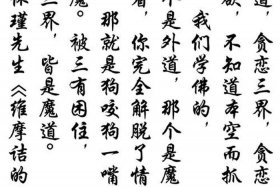 三界，贪恋
欲，不知道本空而抓
我们学佛的，
是外道，那个是魔
看，你完全解脱了情
那就是狗咬狗一嘴
魔。被三有困住，
三界，皆是魔道。
怀瑾先生《维摩诘的